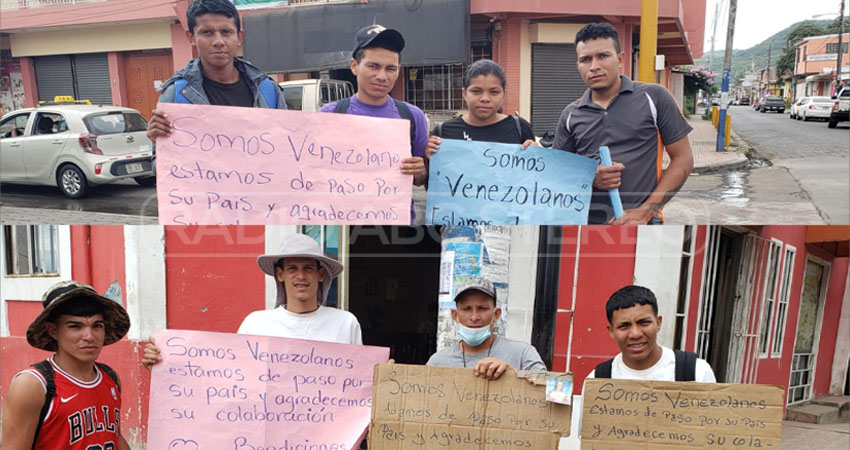 Somos Venezolano
estamos de Paso Por
Su Pais y agradecemos
Somos
"Venezolanos"
Estamos
RADIO ABC STEREO
Somos Venezolano
estamos de paso por
su país y agradecemos
su colaboración
Bendiciones
Somos Venezolanos
de Paso Por su
Pais y Agradecemos
Somos Venezolanos
Estamos de Paso Por su Pais
y Agradecemos su cola
BULLS